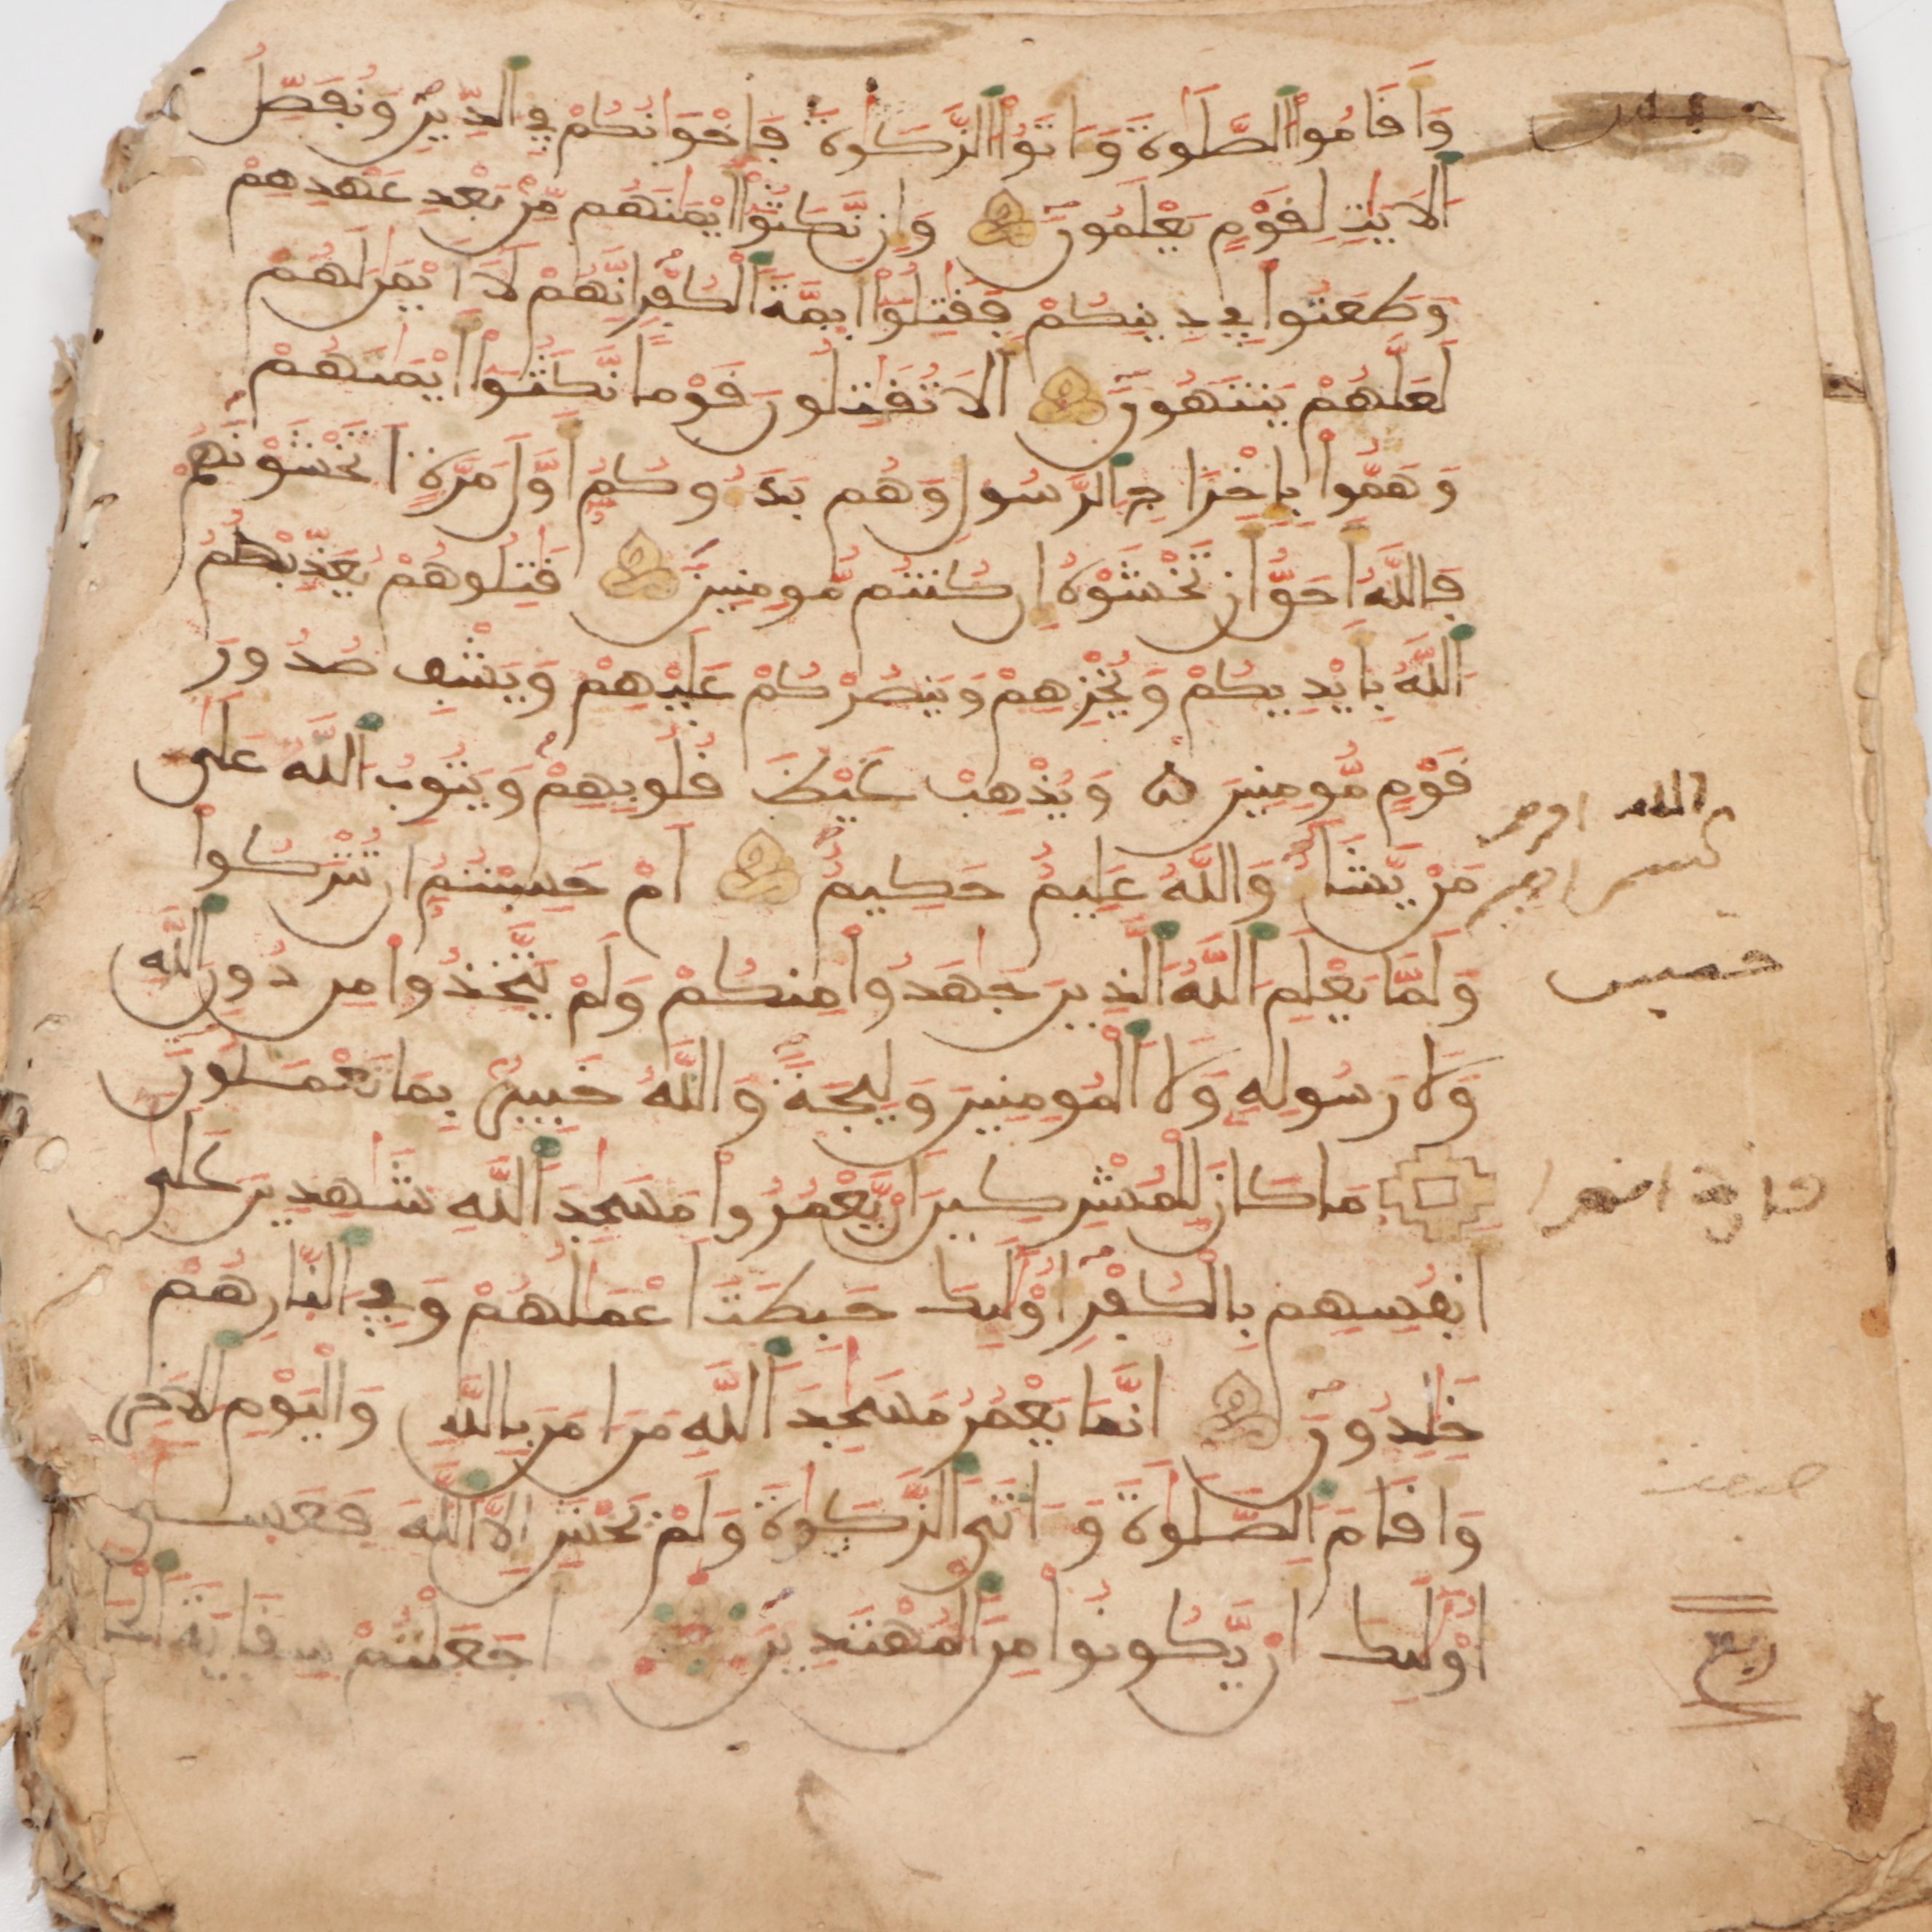 وَأَقَامُوا الصَّلَوٰةَ وَءَاتَوُا الزَّكَوٰةَ فَإِخْوَٰنُكُمْ فِي الدِّينِ وَنُفَصِّلُ
الَايَٰتِ لِقَوْمٍ يَعْلَمُونَ وَإِن نَّكَثُوا أَيْمَٰنَهُم مِّنْ بَعْدِ عَهْدِهِمْ
وَطَعَنُوا فِي دِينِكُمْ فَقَٰتِلُوا أَيِمَّةَ الْكُفْرِ إِنَّهُمْ لَا أَيْمَٰنَ لَهُمْ
لَعَلَّهُمْ يَنتَهُونَ أَلَا تُقَٰتِلُونَ قَوْمًا نَّكَثُوا أَيْمَٰنَهُمْ
وَهَمُّوا بِإِخْرَاجِ الرَّسُولِ وَهُم بَدَءُوكُمُ أَوَّلَ مَرَّةٍ أَتَخْشَوْنَهُمْ
فَاللَّهُ أَحَقُّ أَن تَخْشَوْهُ إِن كُنتُم مُّومِنِينَ قَٰتِلُوهُمْ يُعَذِّبْهُمُ
اللَّهُ بِأَيْدِيكُمْ وَيُخْزِهِمْ وَيَنصُرْكُمْ عَلَيْهِمْ وَيَشْفِ صُدُورَ
قَوْمٍ مُّومِنِينَ وَيُذْهِبْ غَيْظَ قُلُوبِهِمْ وَيَتُوبُ اللَّهُ عَلَىٰ
مَنْ يَّشَاءُ وَاللَّهُ عَلِيمٌ حَكِيمٌ أَمْ حَسِبْتُمُ أَن تُتْرَكُوا
وَلَمَّا يَعْلَمِ اللَّهُ الَّذِينَ جَٰهَدُوا مِنكُمْ وَلَمْ يَتَّخِذُوا مِن دُونِ اللَّهِ
خمس
وَلَا رَسُولِهِ وَلَا الْمُومِنِينَ وَلِيجَةً وَاللَّهُ خَبِيرٌ بِمَا تَعْمَلُونَ
مَا كَانَ لِلْمُشْرِكِينَ أَنْ يَّعْمُرُوا مَسَٰجِدَ اللَّهِ شَٰهِدِينَ عَلَىٰ
أَنفُسِهِم بِالْكُفْرِ أُوْلَٰئِكَ حَبِطَتَ اعْمَٰلُهُمْ وَفِي النَّارِ هُمْ
خَٰلِدُونَ إِنَّمَا يَعْمُرُ مَسَٰجِدَ اللَّهِ مَنَ امَنَ بِاللَّهِ وَالْيَوْمِ الَاخِرِ
وَأَقَامَ الصَّلَوٰةَ وَءَاتَى الزَّكَوٰةَ وَلَمْ يَخْشَ إِلَّا اللَّهَ فَعَسَىٰ
أُوْلَٰئِكَ أَنْ يَّكُونُوا مِنَ الْمُهْتَدِينَ أَجَعَلْتُمْ سِقَايَةَ الْحَا
ربع